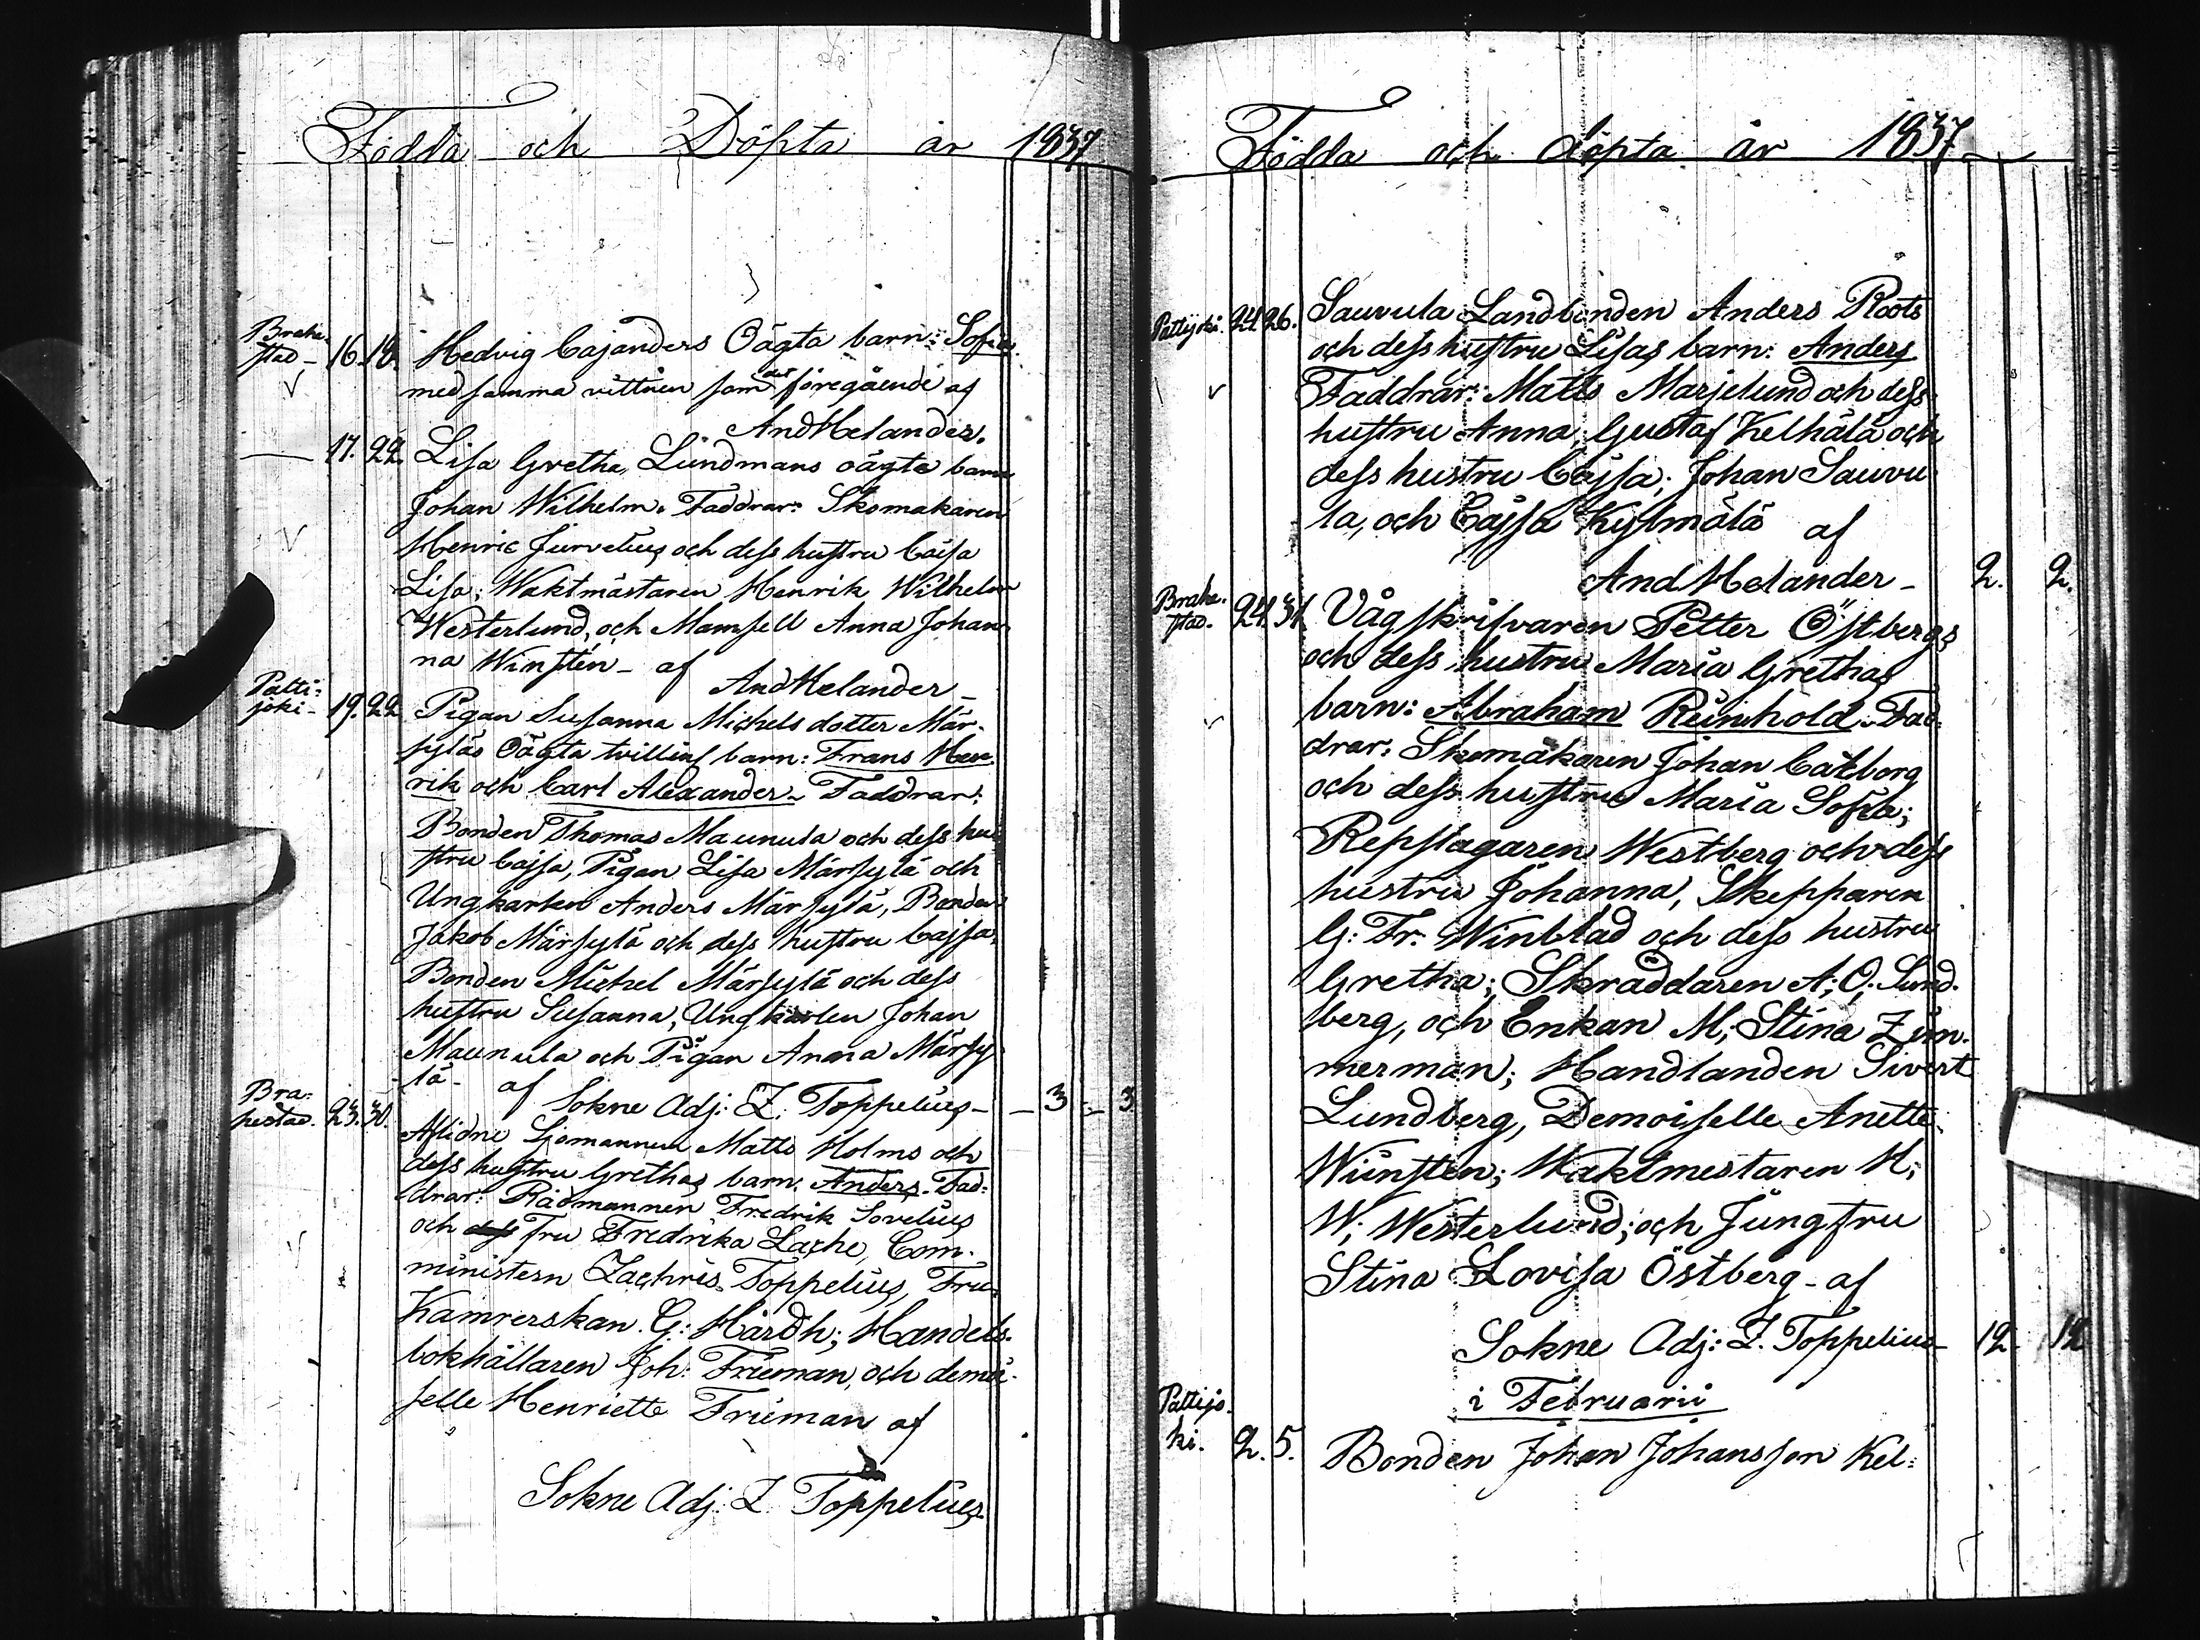 Födda och Döpta år 1837
Brahe-
stad - 16. 18. Hedvig Cajanders Oägta barn: Sofia
med samma vittnen som det föregående af
And Helander.
17. 22. Lisa Gretha Lundmans oägta barn
Johan Wilhelm. Faddrar: Skomakaren
Henric Jurvelius och dess hustru Cajsa
Lisa; Waktmästaren Henrik Wilhelm
Westerlund, och Mamsell Anna Johan-
na Winstén - af And Helander -
Patti-
joki - 19. 22 Pigan Susanna Michels dotter Mär-
syläs Oägta tvilling barn: Frans Hen-
rik och Carl Alexander. Faddrar:
Bonden Thomas Maunula och dess hu-
stru Cajsa, Pigan Lisa Märsylä och
Ungkarlen Anders Märsylä, Bonden
Jakob Märsylä och dess hustru Cajsa,
Bonden Michel Märsylä och dess
hustru Susanna, Ungkarlen Johan
Maunula och Pigan Anna Märsy-
lä - af Sokne Adj: Z. Toppelius - 3 - 3
Bra-
hestad. 23. 30. Aflidne Sjömannen Matts Holms och
dess hustru Grethas barn. Anders. Fad-
drar: Rådmannen Fredrik Sovelius
och dess Fru Fredrika Lache, Com-
ministern Zachris Toppelius, Fru
Kamrerskan G: Hårdh; Handels-
bokhållaren Joh: Frieman, och demoi-
selle Henriette Frieman af
Sokne Adj: Z Toppelius
Födda och döpta år 1837
Pattijoki. 24. 26. Sauvula Landbonden Anders Roots
och dess hustru Lisas barn: Anders
Faddrar: Matts Marjelund och dess
hustru Anna, Gustaf Kelhälä och
dess hustru Cajsa; Johan Sauvu-
la, och Cajsa Kylmälä af
And Helander - 2. 2.
Brahe-
stad. 24. 31. Vågskrifvaren Petter Östbergs
och dess hustru Maria Grethas
barn: Abraham Reinhold. Fad-
drar: Skomakaren Johan Calborg
och dess hustru Maria Sofia;
Repslagaren Westberg och dess
hustru Johanna, Skepparen
G: Fr. Winblad och dess hustru
Gretha; Skräddaren A; O. Sund-
berg, och Enkan M; Stina Zim-
merman; Handlanden Sivert
Lundberg, Demoiselle Anette
Winsten; Waktmestaren H;
W; Westerlund; och Jungfru
Stina Lovisa Östberg - af
Sokne Adj: Z. Toppelius - 12 12
i Februarii
Pattijo-
ki. 2. 5. Bonden Johan Johansson Kel-